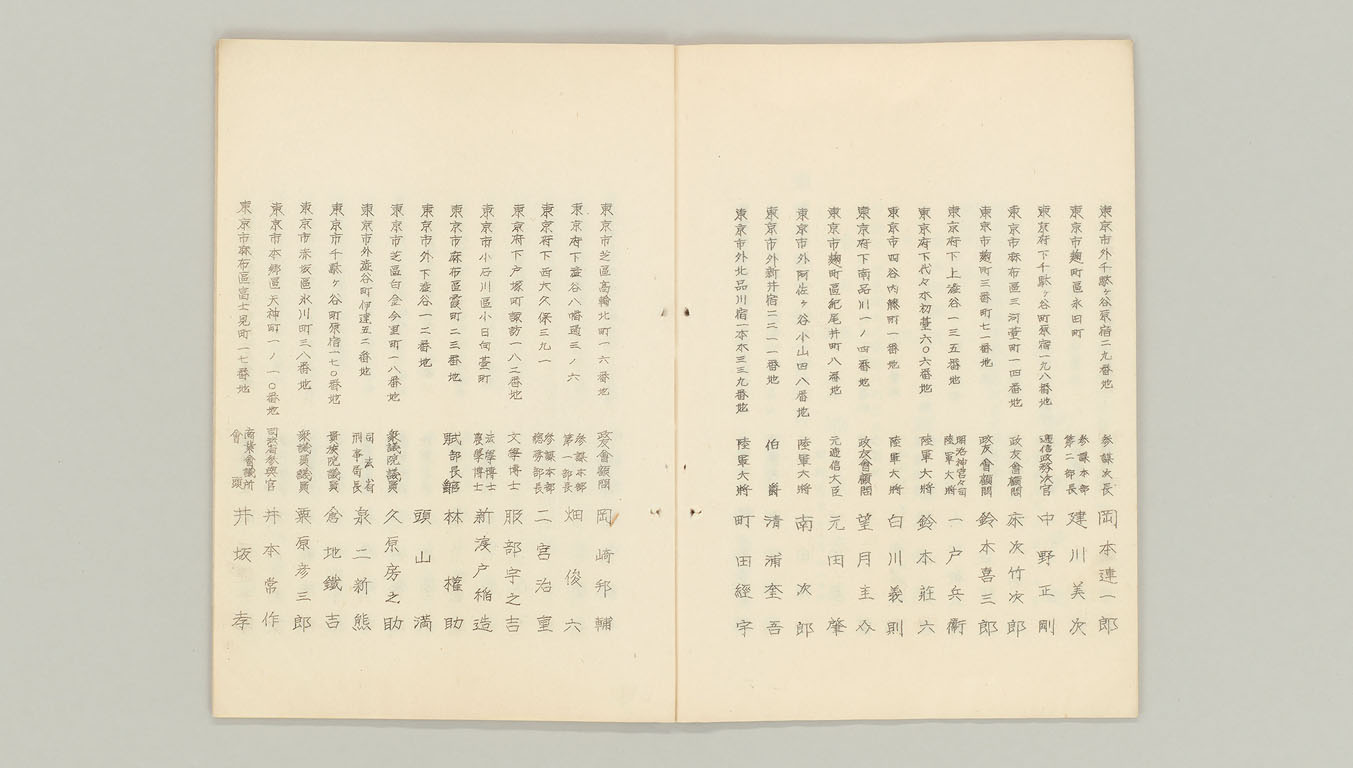 東京市外千駄ヶ谷原宿二九番地 参謀次長 岡本連一郎
東京市麹町區永田町 参謀本部第二部長 建川美次
東京府下千駄ヶ谷町原宿一九八番地 逓信政務次官 中野正剛
東京市麻布區三河薹町一四番地 政友會顧問 床次竹次郎
東京市麹町三番町七一番地 政友會顧問 鈴木喜三郎
東京府下上澁谷一三五番地 明治神宮々司陸軍大將 一戸兵衞
東京府下代々木初薹六〇六番地 陸軍大將 鈴木莊六
東京市四谷内藤町一番地 陸軍大將 白川義則
東京府下南品川一ノ四番地 政友會顧問 望月圭介
東京市麹町區紀尾井町八番地 元遞信大臣 元田肇
東京市外阿佐ヶ谷小山四八番地 陸軍大將 南次郎
東京市外新井宿二二一一番地 伯爵 清浦奎吾
東京市外北品川宿一本木三三九番地 陸軍大將 町田經宇
東京市芝區高輪北町一六番地 政友會顧問 岡崎邦輔
東京府下澁谷八幡通三ノ六 参謀本部第一部長 畑俊六
東京府下西大久保三九一 参謀本部總務部長 二宮治重
東京府下戸塚町諏訪一八二番地 文學博士 服部宇之吉
東京市小石川區小日向薹町 法學博士農學博士 新渡戸稲造
東京市麻布區霞町二三番地 式部長官 林權助
東京市外下澁谷一二番地 頭山満
東京市芝區白金今里町一八番地 衆議院議員 久原房之助
東京市外澁谷町伊達五二番地 司法省刑事局長 泉二新熊
東京市千駄ヶ谷町原宿一七〇番地 貴族院議員 倉地鐵吉
東京市赤坂區氷川町三八番地 衆議員議員 粟原彦三郎
東京市本郷區天神町一ノ一〇番地 司法省参與官 井本常作
東京市麻布區富士見町一七番地 商業會議所會頭 井坂孝